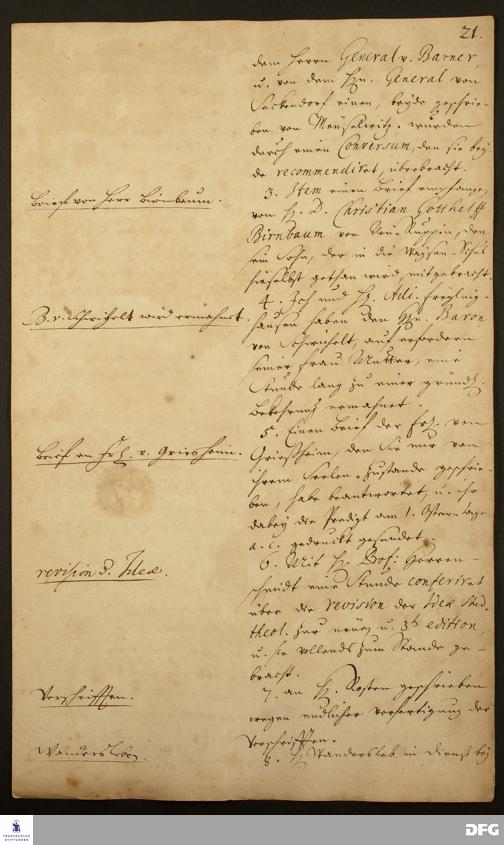 21.
dem Herrn General v. Barner,
u. von dem Hn. General von
Seckendorf einen, beyde geschrie-
ben von Meuselwitz, wurden
durch einen Conversum, den sie bey-
de recommendiret, überbracht.
Brief von Herr Birnbaum.
3. Item einen Brief empfangen
von H. D. Christian Gotthelff
Birnbaum von Neu-Ruppin, den
sein Sohn, der in die Waysen-Schul
hieselbst gethan wird, mitgebracht.
B. v. Schwichelt wird ermahnet.
4. Ich und H. Adj. Freyling-
hausen haben den Hn. Baron
von Schwichelt, auf erfordern
seiner Frau Mutter, eine
Stunde lang zu einer gründl.
Bekehrung ermahnet.
Brief an Frl. v. Griesheim.
5. Einen Brief der Frl. von
Griesheim, den Sie mir von
ihrem Seelen-Zustande geschrie-
ben, habe beantwortet, u. ihr
dabey die Predigt am 1. Oster-tage
a. c. gedruckt gesendet.
revision d. Ideae.
6. Mit H. Prof. Herren-
schmidt eine Stunde conferiret
über die revision der Idea stud.
theol. zur neuen u. 3t edition,
u. sie vollends zum Stande ge-
bracht.
Vorschrifften.
7. an H. Rosten geschrieben
wegen endlicher verfertigung der
Vorschrifften.
Wandersleben.
8. H. Wandersleb. in Dienst bey
FRANCKESCHE STIFTUNGEN
DFG